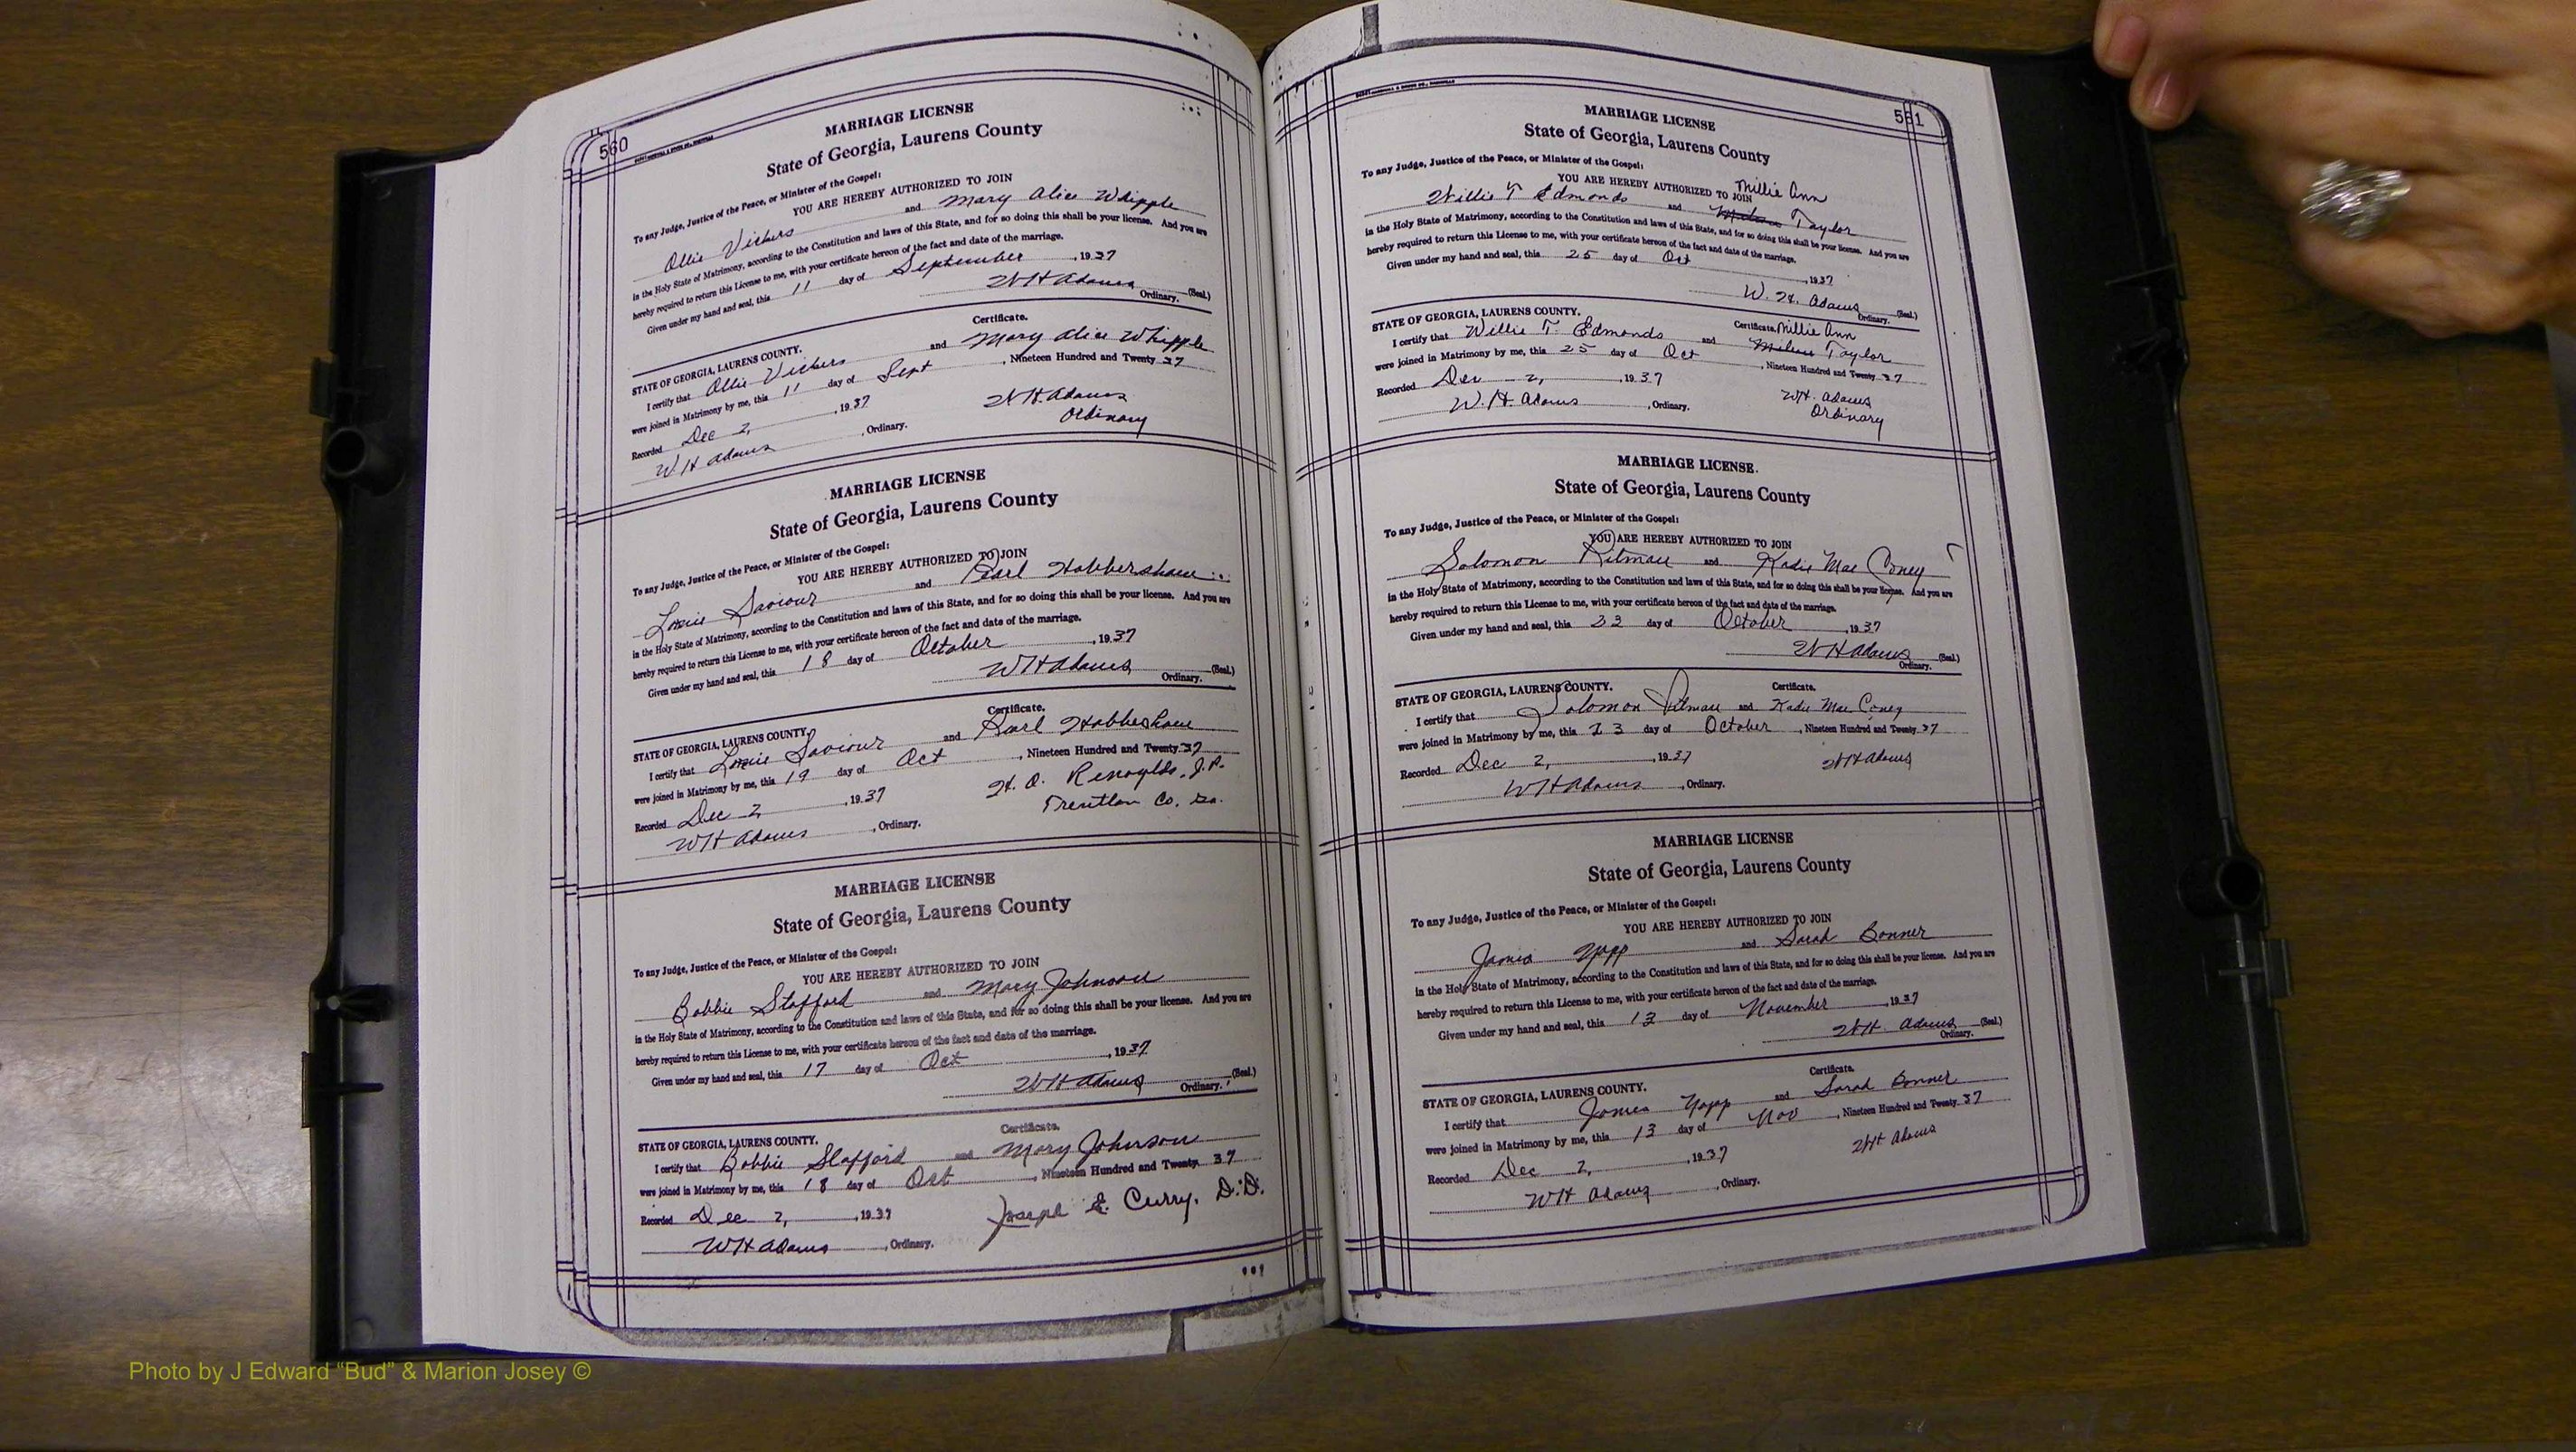 560
MARRIAGE LICENSE
State of Georgia, Laurens County
To any Judge, Justice of the Peace, or Minister of the Gospel:
YOU ARE HEREBY AUTHORIZED TO JOIN
Ollie Vickers and Mary Alice Whipple
in the Holy State of Matrimony, according to the Constitution and laws of this State, and for so doing this shall be your license. And you are
hereby required to return this License to me, with your certificate hereon of the fact and date of the marriage.
Given under my hand and seal, this 11 day of September, 1937
W H Adams (Seal.)
Ordinary.
Certificate.
STATE OF GEORGIA, LAURENS COUNTY.
I certify that Ollie Vickers and Mary Alice Whipple
were joined in Matrimony by me, this 11 day of Sept, Nineteen Hundred and Twenty 37
Recorded Dec 2, 1937 W H. Adams
W H Adams, Ordinary. Ordinary
MARRIAGE LICENSE
State of Georgia, Laurens County
To any Judge, Justice of the Peace, or Minister of the Gospel:
YOU ARE HEREBY AUTHORIZED TO JOIN
Saviour and Pearl
in the Holy State of Matrimony, according to the Constitution and laws of this State, and for so doing this shall be your license. And you are
hereby required to return this License to me, with your certificate hereon of the fact and date of the marriage.
Given under my hand and seal, this 18 day of October, 1937
W H Adams (Seal.)
Ordinary.
Certificate.
STATE OF GEORGIA, LAURENS COUNTY.
I certify that Saviour and Pearl
were joined in Matrimony by me, this 19 day of Oct, Nineteen Hundred and Twenty 37
Recorded Dec 2, 1937 J.P.
W H Adams, Ordinary. Co, Ga.
MARRIAGE LICENSE
State of Georgia, Laurens County
To any Judge, Justice of the Peace, or Minister of the Gospel:
YOU ARE HEREBY AUTHORIZED TO JOIN
Bobbie Stafford and Mary Johnson
in the Holy State of Matrimony, according to the Constitution and laws of this State, and for so doing this shall be your license. And you are
hereby required to return this License to me, with your certificate hereon of the fact and date of the marriage.
Given under my hand and seal, this 17 day of Oct, 1937
W H Adams (Seal.)
Ordinary.
Certificate.
STATE OF GEORGIA, LAURENS COUNTY.
I certify that Bobbie Stafford and Mary Johnson
were joined in Matrimony by me, this 18 day of Oct, Nineteen Hundred and Twenty 37
Recorded Dec 2, 1937 Joseph E. Curry, D.D.
W H Adams, Ordinary.
561
MARRIAGE LICENSE
State of Georgia, Laurens County
To any Judge, Justice of the Peace, or Minister of the Gospel:
YOU ARE HEREBY AUTHORIZED TO JOIN Millie Ann
Willie T Edmonds and Taylor
in the Holy State of Matrimony, according to the Constitution and laws of this State, and for so doing this shall be your license. And you are
hereby required to return this License to me, with your certificate hereon of the fact and date of the marriage.
Given under my hand and seal, this 25 day of Oct, 1937
W. H. Adams (Seal.)
Ordinary.
Certificate. Millie Ann
STATE OF GEORGIA, LAURENS COUNTY.
I certify that Willie T. Edmonds and Taylor
were joined in Matrimony by me, this 25 day of Oct, Nineteen Hundred and Twenty 37
Recorded Dec 2, 1937 W H. Adams
W. H. Adams, Ordinary. Ordinary
MARRIAGE LICENSE.
State of Georgia, Laurens County
To any Judge, Justice of the Peace, or Minister of the Gospel:
YOU ARE HEREBY AUTHORIZED TO JOIN
Solomon Pitman and Kadie Mae Coney
in the Holy State of Matrimony, according to the Constitution and laws of this State, and for so doing this shall be your license. And you are
hereby required to return this License to me, with your certificate hereon of the fact and date of the marriage.
Given under my hand and seal, this day of October, 1937
W H Adams (Seal.)
Ordinary.
Certificate.
STATE OF GEORGIA, LAURENS COUNTY.
I certify that Solomon Pitman and Kadie Mae Coney
were joined in Matrimony by me, this 23 day of October, Nineteen Hundred and Twenty 37
Recorded Dec 2, 1937 W H Adams
W H Adams, Ordinary.
MARRIAGE LICENSE
State of Georgia, Laurens County
To any Judge, Justice of the Peace, or Minister of the Gospel:
YOU ARE HEREBY AUTHORIZED TO JOIN
James Yopp and Sarah Bonner
in the Holy State of Matrimony, according to the Constitution and laws of this State, and for so doing this shall be your license. And you are
hereby required to return this License to me, with your certificate hereon of the fact and date of the marriage.
Given under my hand and seal, this 13 day of November, 1937
W H. Adams (Seal.)
Ordinary.
Certificate.
STATE OF GEORGIA, LAURENS COUNTY.
I certify that James Yopp and Sarah Bonner
were joined in Matrimony by me, this 13 day of Nov, Nineteen Hundred and Twenty 37
Recorded Dec 2, 1937 W H Adams
W H Adams, Ordinary.
Photo by J Edward “Bud” & Marion Josey ©